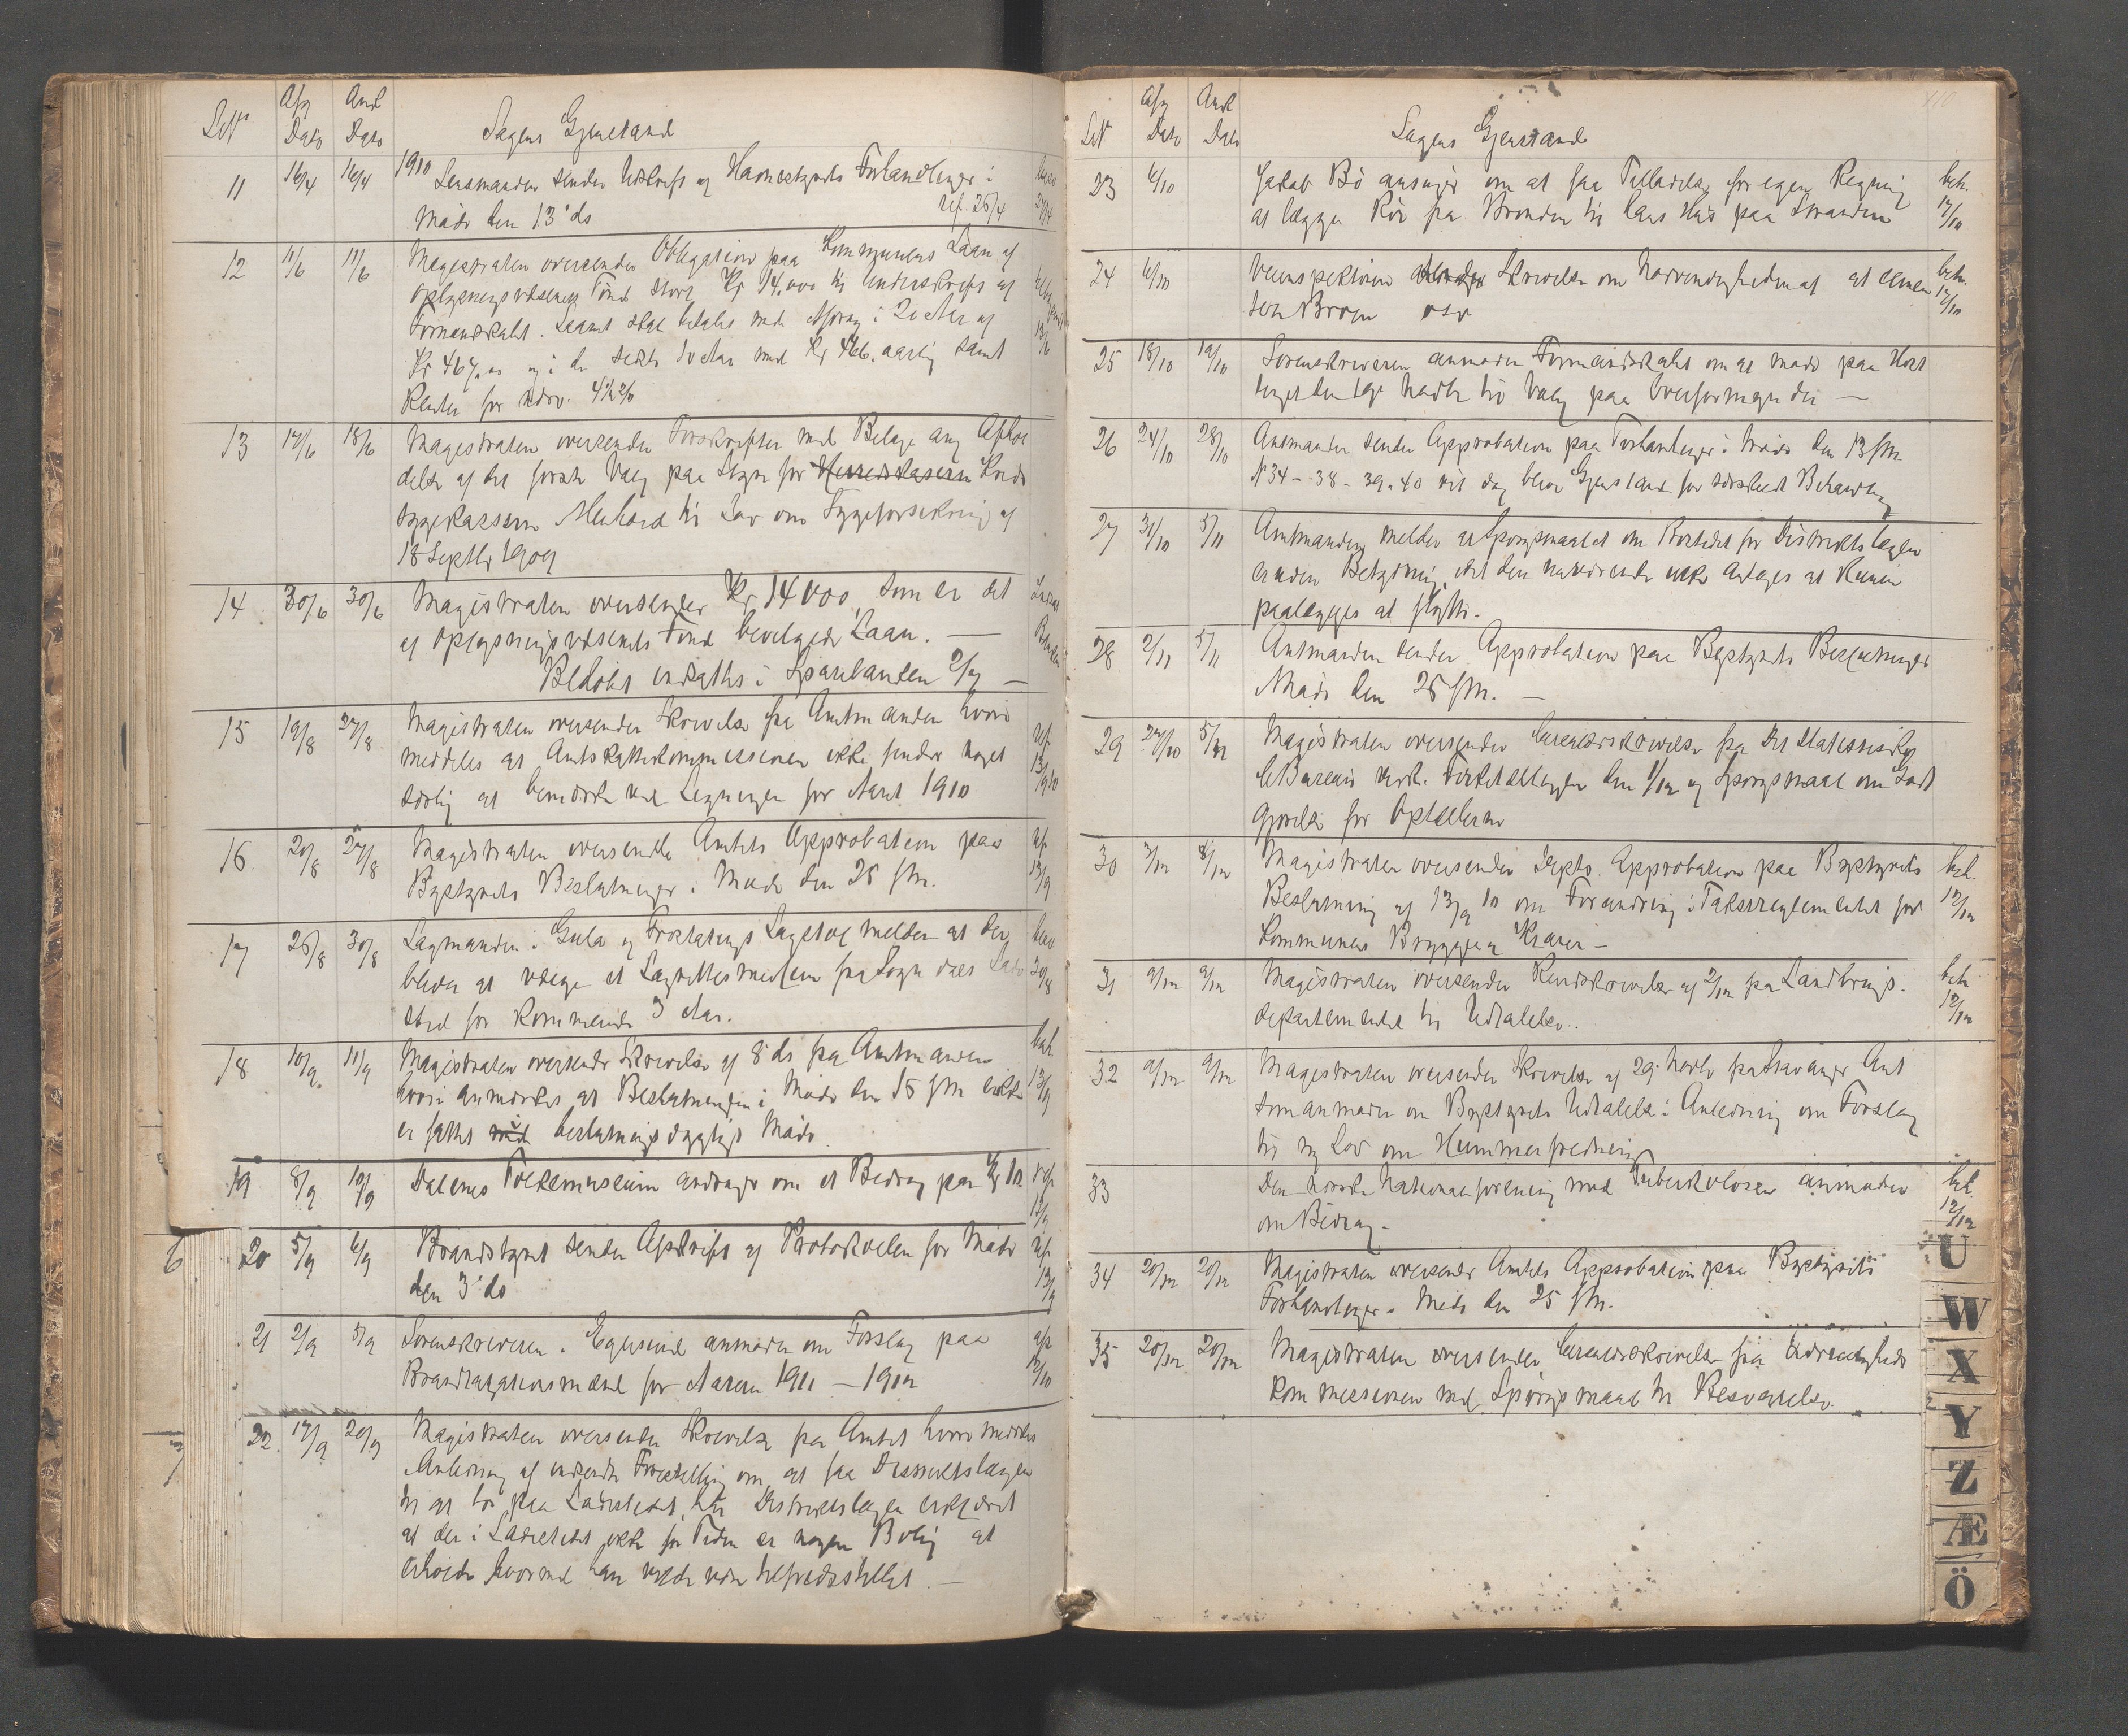 LN Afg Dato Ank Dato Sagens Gjenstand
11 16/4 16/4 1910 Lensmanden sender Udskrift af Havnestyrets Forhandlinger i
Møde den 13' ds ref. 25/4
12 11/6 11/6 Magistraten oversender Obligation paa Kommunens Laan af
Oplysningsvæsenets Fond stort Kr 14.000 til Underskrift af
Formandskabet. Laanet skal betales med Afdrag i 20 Aar af
Kr 467,00 og i de sidste 10 Aar med Kr 466. aarlig samt
Renter for Udsv. 4 1/2 %
13 17/6 18/6 Magistraten oversender Forskrifter med Bilage ang Afhol
delse af det første Valg paa Styre for Herredskassen Kreds
sygekassen i Henhold til Lov om Sygeforsikring af
18 Septbr 1909
14 30/6 30/6 Magistraten oversender Kr 14000, som er det
af Oplysningsvæsenets Fond bevilgede Laan. —
Beløbet indsattes i Sparebanken 2/7 —
15 19/8 27/8 Magistraten oversender Skrivelse fra Amtmanden hvori
meddeles at Amtsskattekommissionen ikke finder noget
særlig at bemærke ved Ligningen for Aaret 1910 ref. 13/9 10
16 20/8 27/8 Magistraten oversendte Amtets Approbation paa
Bystyrets Beslutninger i Møde den 28 f.m. ref. 13/9
17 26/8 30/8 Lagmanden i Gula og Frostatings Lagstol melder at der
bliver at vælge et Lagrettesmedlem fra Sogndals Lade
sted for kommende 3 Aar. 30/8
18 10/9 11/9 Magistraten oversender Skrivelse af 8' ds fra Amtmanden
hvori anmærkes at Beslutningen i Møde den 15 f.m. ikke
er fattet ved beslutningsdygtigt Møde. beh. 13/9
19 8/9 10/9 Dalenes Folkemuseum andrager om et Bidrag paa Kr 10. ref.
20 5/9 6/9 Brandstyret sender Afskrift af Protokollen for Møde
den 3' ds ref. 13/9
21 2/9 3/9 Sorenskriveren i Egersund anmoder om Forslag paa
Brandtaxationsmænd for Aarene 1911 — 1912
22 17/9 20/9 Magistraten oversender Skrivelse fra Amtet hvori meddeles
Anledning af indsendte Forestilling om at faa Distriktslægen
til at bo paa Ladestedet, har Distriktslægen erklæret
at der i Ladestedet ikke for Tiden er nogen Bolig at
erholde hvormed han vilde være tilfredsstillet. —
LN Afg Dato Ank Dato Sagens Gjenstand
23 6/10 Jakob Bø ansøger om at faa Tilladelse for egen Regning
at lægge Rør fra Brønden til hans Hus paa Stranden beh. 12/10
24 6/10 Veiinspektøren Skrivelse om Nødvendigheden af at cemen
tere Broen osv beh. 12/10
25 18/10 19/10 Sorenskriveren anmoder Formandskabet om at møde paa Host
til Valg paa Overformynder —
26 24/10 28/10 Amtmanden sender Approbation paa Forhandlinger i Møde den 13 f.m.
N 34 - 38 - 39 - 40 vil dog blive Gjenstand for særskilt Behandling
27 31/10 5/11 Amtmanden melder at Spørgsmaalet om Bostedet for Distriktslægen
er uden Betydning, idet den nuværende ikke antages at kunne
paalægges at flytte.
28 2/11 5/11 Amtmanden sender Approbation paa Bystyrets Beslutninger
Møde den 25 f.m. —
29 27/10 5/11 Magistraten oversender Circulærskrivelse fra Det Statistiske
C Bureau vedk. Folketællingen den 1/12 og Spørgsmaal om Godt
gjørelse for Optællerne
30 7/12 8/12 Magistraten oversender Depts. Approbation paa Bystyrets
Beslutning af 13/9 10 om Forandring i Takstreglementet for
Kommunens Brygge og Kraner — beh. 12/12
31 9/12 9/12 Magistraten oversender Rundskrivelse af 2/12 fra Landbrugs-
departementet til Udtalelse. beh. 12/12
32 9/12 9/12 Magistraten oversender Skrivelse af 29' Novbr fra Stavanger Amt
som anmoder om Bystyrets Udtalelse i Anledning om Forslag
til ny Lov om Hummerfredning
33 Den norske Nationalforening mod Tuberkulosen anmoder
om Bidrag — beh. 12/12
34 20/12 20/12 Magistraten oversender Amtets Approbation paa Bystyrets
Forhandlinger i Møde den 25 f.m.
35 20/12 20/12 Magistraten oversender Circulærskrivelse fra
Kommissionen med Spørgsmaal til Besvarelse.
U
W
X
Y
Z
Æ
Ö